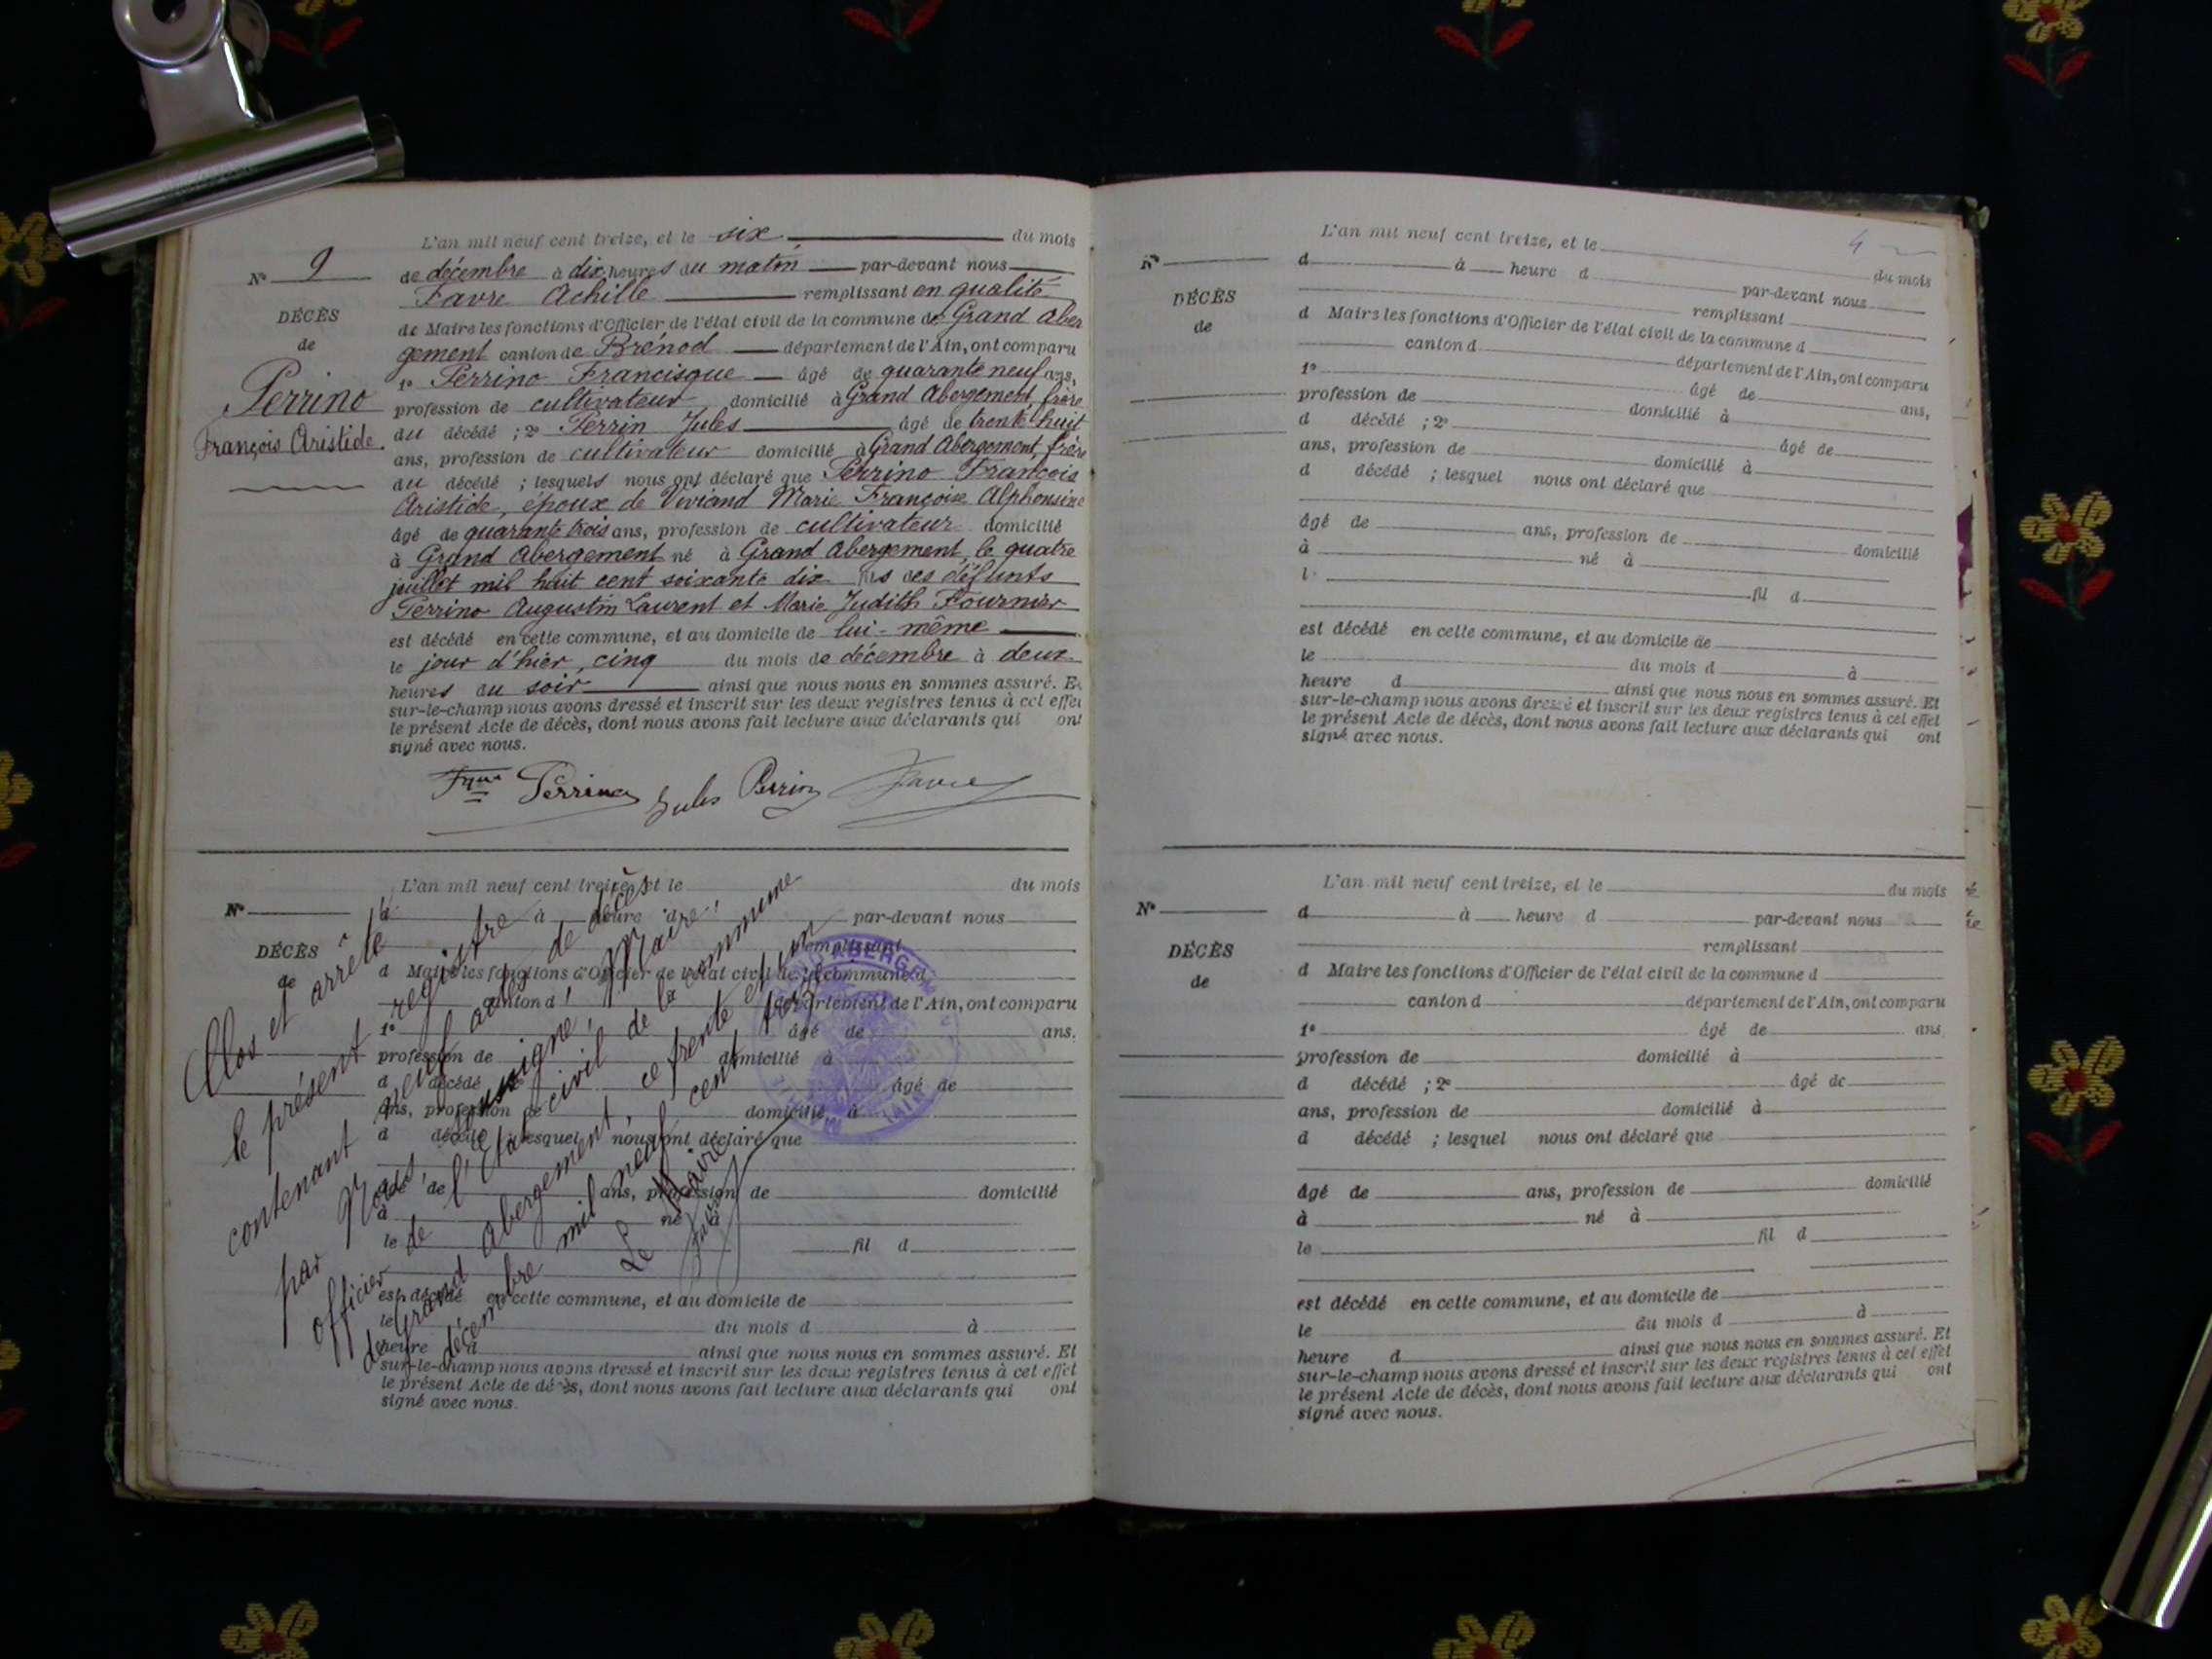 L'an mil neuf cent treize, et le six du mois
N° 9
de décembre à dix heures du matin par-devant nous
Favre Achille remplissant en qualité
DÉCÈS
de Maire les fonctions d'Officier de l'état civil de la commune de Grand Aber
de
gement canton de Brénod département de l'Ain, ont comparu
1° Perrino Francisque âgé de quarante neuf ans,
Perrino
profession de cultivateur domicilié à Grand Abergement, frère
François Aristide
du décédé ; 2° Perrin Jules âgé de trente huit
ans, profession de cultivateur domicilié à Grand Abergement, frère
du décédé ; lesquels nous ont déclaré que Perrino François
Aristide, époux de Viviand Marie Françoise Alphonsine
âgé de quarante trois ans, profession de cultivateur domicilié
à Grand Abergement né à Grand Abergement, le quatre
juillet mil huit cent soixante dix fils des défunts
Perrino Augustin Laurent et Marie Judith Fournier
est décédé en cette commune, et au domicile de lui-même
le jour d'hier, cinq du mois de décembre à deux
heures du soir ainsi que nous nous en sommes assuré. Et
sur-le-champ nous avons dressé et inscrit sur les deux registres tenus à cet effet
le présent Acte de décès, dont nous avons fait lecture aux déclarants qui ont
signé avec nous.
Fque Perrino Jules Perrin Favre
L'an mil neuf cent treize, et le du mois
N°
d à heure d par-devant nous
remplissant
DÉCÈS
de
d Maire les fonctions d'Officier de l'état civil de la commune d
canton d département de l'Ain, ont comparu
1° âgé de ans.
profession de domicilié à
d décédé ; 2° âgé de
ans, profession de domicilié à
d décédé ; lesquel nous ont déclaré que
âgé de ans, profession de domicilié
à né à
le fil d
est décédé en cette commune, et au domicile de
le du mois d à
heure d ainsi que nous nous en sommes assuré. Et
sur-le-champ nous avons dressé et inscrit sur les deux registres tenus à cet effet
le présent Acte de décès, dont nous avons fait lecture aux déclarants qui ont
signé avec nous.
Clos et arrêté
le présent registre
contenant neuf actes de décès
par Nous, soussigné, Maire,
officier de l'Etat civil de la commune
de Grand Abergement, ce trente et un
décembre mil neuf cent treize
Le Maire
Favre
ABERGEMENT
MAIRIE
(AIN)
4
L'an mil neuf cent treize, et le du mois
N°
d à heure d par-devant nous
remplissant
DÉCÈS
de
d Maire les fonctions d'Officier de l'état civil de la commune d
canton d département de l'Ain, ont comparu
1° âgé de ans,
profession de domicilié à
d décédé ; 2° âgé de
ans, profession de domicilié à
d décédé ; lesquel nous ont déclaré que
âgé de ans, profession de domicilié
à né à
l
fil d
est décédé en cette commune, et au domicile de
le du mois d à
heure d ainsi que nous nous en sommes assuré. Et
sur-le-champ nous avons dressé et inscrit sur les deux registres tenus à cet effet
le présent Acte de décès, dont nous avons fait lecture aux déclarants qui ont
signé avec nous.
L'an mil neuf cent treize, et le du mois
N°
d à heure d par-devant nous
remplissant
DÉCÈS
de
d Maire les fonctions d'Officier de l'état civil de la commune d
canton d département de l'Ain, ont comparu
1° âgé de ans,
profession de domicilié à
d décédé ; 2° âgé de
ans, profession de domicilié à
d décédé ; lesquel nous ont déclaré que
âgé de ans, profession de domicilié
à né à
le fil d
est décédé en cette commune, et au domicile de
le du mois d à
heure d ainsi que nous nous en sommes assuré. Et
sur-le-champ nous avons dressé et inscrit sur les deux registres tenus à cet effet
le présent Acte de décès, dont nous avons fait lecture aux déclarants qui ont
signé avec nous.